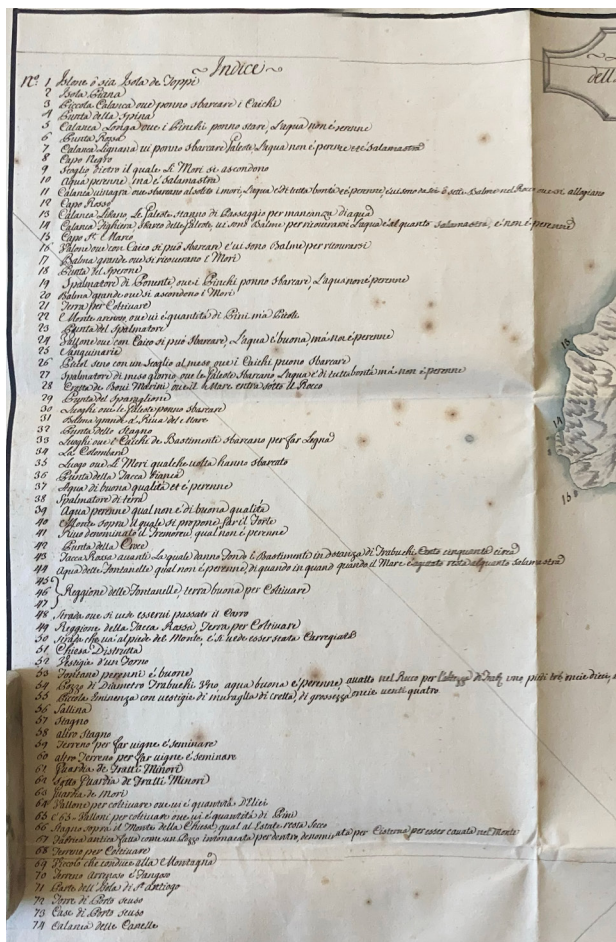 Indice
dell
N.º 1 Isione ò sia Isola de Toppi
2 Isola Piana
3 Piccola Calanca oue ponno sbarcare i Caichi
4 Punta della Spina
5 Calanca Longa oue i Pinchi ponno stare, L'aqua non è perenne
6 Punta Rossa
7 Calanca Lignana ui ponno sbarcare Galeote, L'aqua non è perenne et è Salamastra
8 Capo Negro
9 Scoglio dietro il quale Li Mori si ascondono
10 Aqua perenne ma è salamastra
11 Calanca uinagra oue sbarcano al solito i mori, L'aqua è di tutta bontà et è perenne, è ui sono da sei ò sette Balme nel Rocc oue si allogiano
12 Capo Rosso
13 Calanca Libano Le Galeote stanno di Passaggio per mancanza d'aqua
14 Calanca Fighiera Sbarco delle Galeote, ui sono Balme per ricourarsi L'aqua è alquanto salamastra, è non è perenne
15 Capo St. Marco
16 Valone oue con Caico si può sbarcare è ui sono Balme per ricourarsi
17 Balma grande oue si ricourano i Mori
18 Punta del Sperone
19 Spalmatore di Ponente, oue i Pinchi ponno sbarcare, L'aqua non è perenne
20 Balma grande oue si ascondono i Mori
21 Terra per Coltiuare
22 Monte arenoso, oue ui è quantità di Pini mà Picoli
23 Punta del Spalmatore
24 Vallone oue con Caico si può Sbarcare, L'aqua è buona, mà non è perenne
25 Sanguinarie
26 Picol seno con un Scoglio al meso oue i Caichi puono Sbarcare
27 Spalmatore di meso giorno oue le Galeote Sbarcano L'aqua è di tutta bontà mà non è perenne
28 Crotta de Boui Marini oue il Mare entra sotto il Rocco
29 Punta del Sparaglione
30 Luoghi oue le Galeote ponno sbarcare
31 Balma grande à Riua del Mare
32 Punta dello Stagno
33 Luoghi oue i Caichi de Bastimenti Sbarcano per far Legna
34 La Colombara
35 Luogo oue Li Mori qualche uolta hanno sbarcato
36 Punta della Tacca Bianca
37 Aqua di buona qualità et è perenne
38 Spalmatore di terra
39 Aqua perenne qual non è di buona qualità
40 Monte sopra il quale si propone far il Forte
41 Riuo denominato il Tremoreu, qual non è perenne
42 Punta della Croce
43 Tacca Rossa auanti La quale danno fondo i Bastimenti in distanza di Trabuchi Cento cinquanta circa
44 Aqua delle Fontanelle qual non è perenne, di quando in quando quando il Mare è agitato resta alquanto salamastra
45
46 Reggione delle Fontanelle, terra buona per Coltiuare
47
48 Strada oue si uede esserui passato il Carro
49 Reggione della Tacca Rossa, Terra per Coltiuare
50 Strada che uà al piede del Monte, è si uede esser stata Carregiabile
51 Chiesa Distrutta
52 Vestigie d'un Forno
53 Fontane perenni è buone
54 Pozzo di Diametro Trabuchi Uno, aqua buona è perenne, quatto nel Rocco per
55 Picola Eminenza con uestigie di muraglia di cretta, di grossezza oncie uenti quatro
56 Sallina
57 Stagno
58 altro stagno
59 Terreno per far uigne è seminare
60 altro Terreno per far uigne è seminare
61 Guardia de Fratti Minori
62 Sotto Guardia de Fratti Minori
63 Guardia de Mori
64 Vallone per coltiuare oue ui è quantità D'Elici
65 è 63 Valloni per coltiuare oue ui è quantità di Pini
66 Stagno sopra il Monte della Chiesa, qual al Estate resta Secco
67 Fabrica antica fatta come un Pozzo intonacata per dentro denominata per Cisterna per esser cauata nel Monte
68 Terreno per Coltiuare
69 Vicolo che conduce alla Montagna
70 Terreno Arenoso è Fangoso
71 Parte dell'Isola di St. Antiogo
72 Torre di Porto scuso
73 Case di Porto scuso
74 Calanca delle Canelle
13
14
15